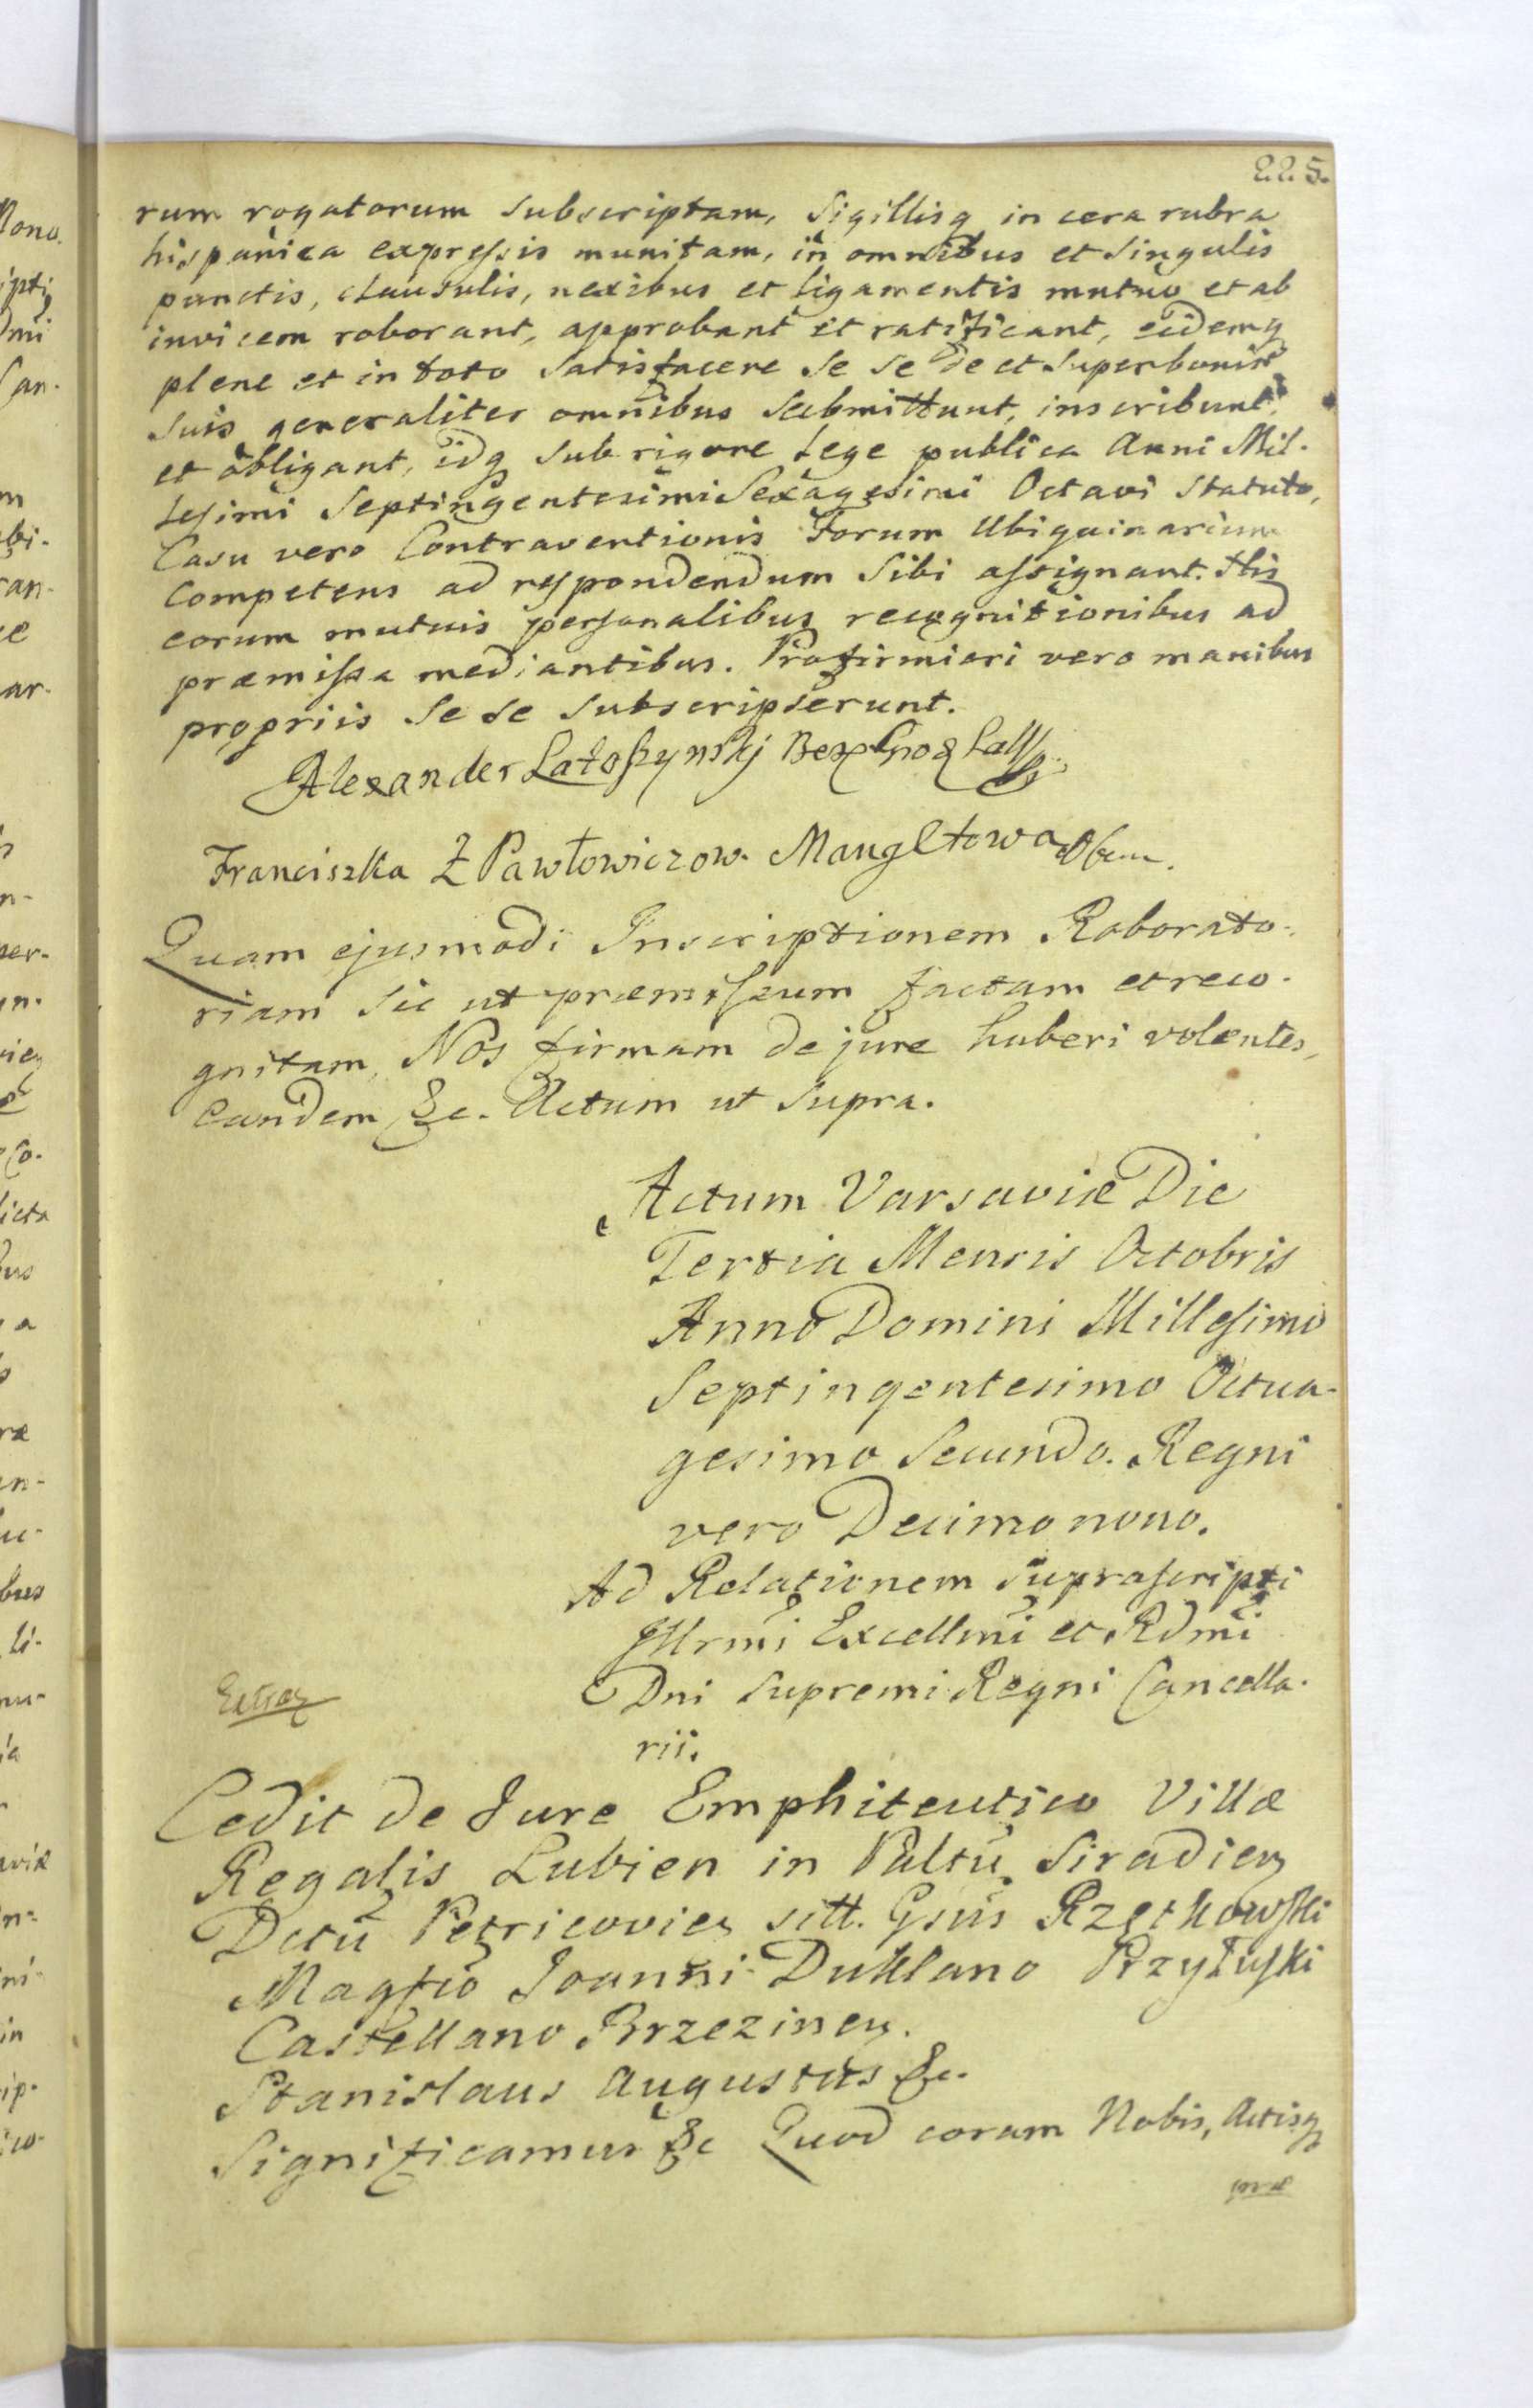 225.
rum rogatorum subscriptam, Sigillisq in cera rubra
hispanica expressis munitam, in omnibus et singulis
punctis, clausulis, nexibus et ligamentis mutuo et ab
invicem roborant, approbant et ratificant, eidemq
plene et in toto satisfacere se se de et super bonis
suis generaliter omnibus submittunt, inscribunt,
et obligant, idq sub rigore Lege publica Anni Mil-
lesimi Septingentesimi Sexagesimi Octavi Statuto,
Casu vero Contraventionis Forum Ubiquinarium
Competens ad respondendum Sibi assignant. His
eorum mutuis personalibus recognitionibus ad
præmissa mediantibus. Pro firmiori vero manibus
propriis Se se subscripserunt.
Alexander Latoszynskj
Franciszka Z Pawłowiczow
Quam ejusmodi Inscriptionem Roborato-
riam sic ut præmissum factam et reco-
gnitam, Nos firmam de jure haberi volentes,
Eandem &c. Actum ut supra.
Actum Varsaviæ Die
Tertia Mensis Octobris
Anno Domini Millesimo
Septingentesimo Octua-
gesimo Secundo. Regni
vero Decimo nono.
Ad Relationem suprascripti
Illrmi Excellmi et Rdmi
Dni Supremi Regni Cancella-
rii.
Cedit de Jure Emphiteutico Villæ
Regalis Lubien in Paltu Siradien
Dctu Petricovien sitt. Gsus Rzętkowski
Magfco Joanni Duklano Przyłuski
Castellano Brzezinen.
Stanislaus Augustus &c.
Significamus &c Quod coram Nobis, Actisq
præ